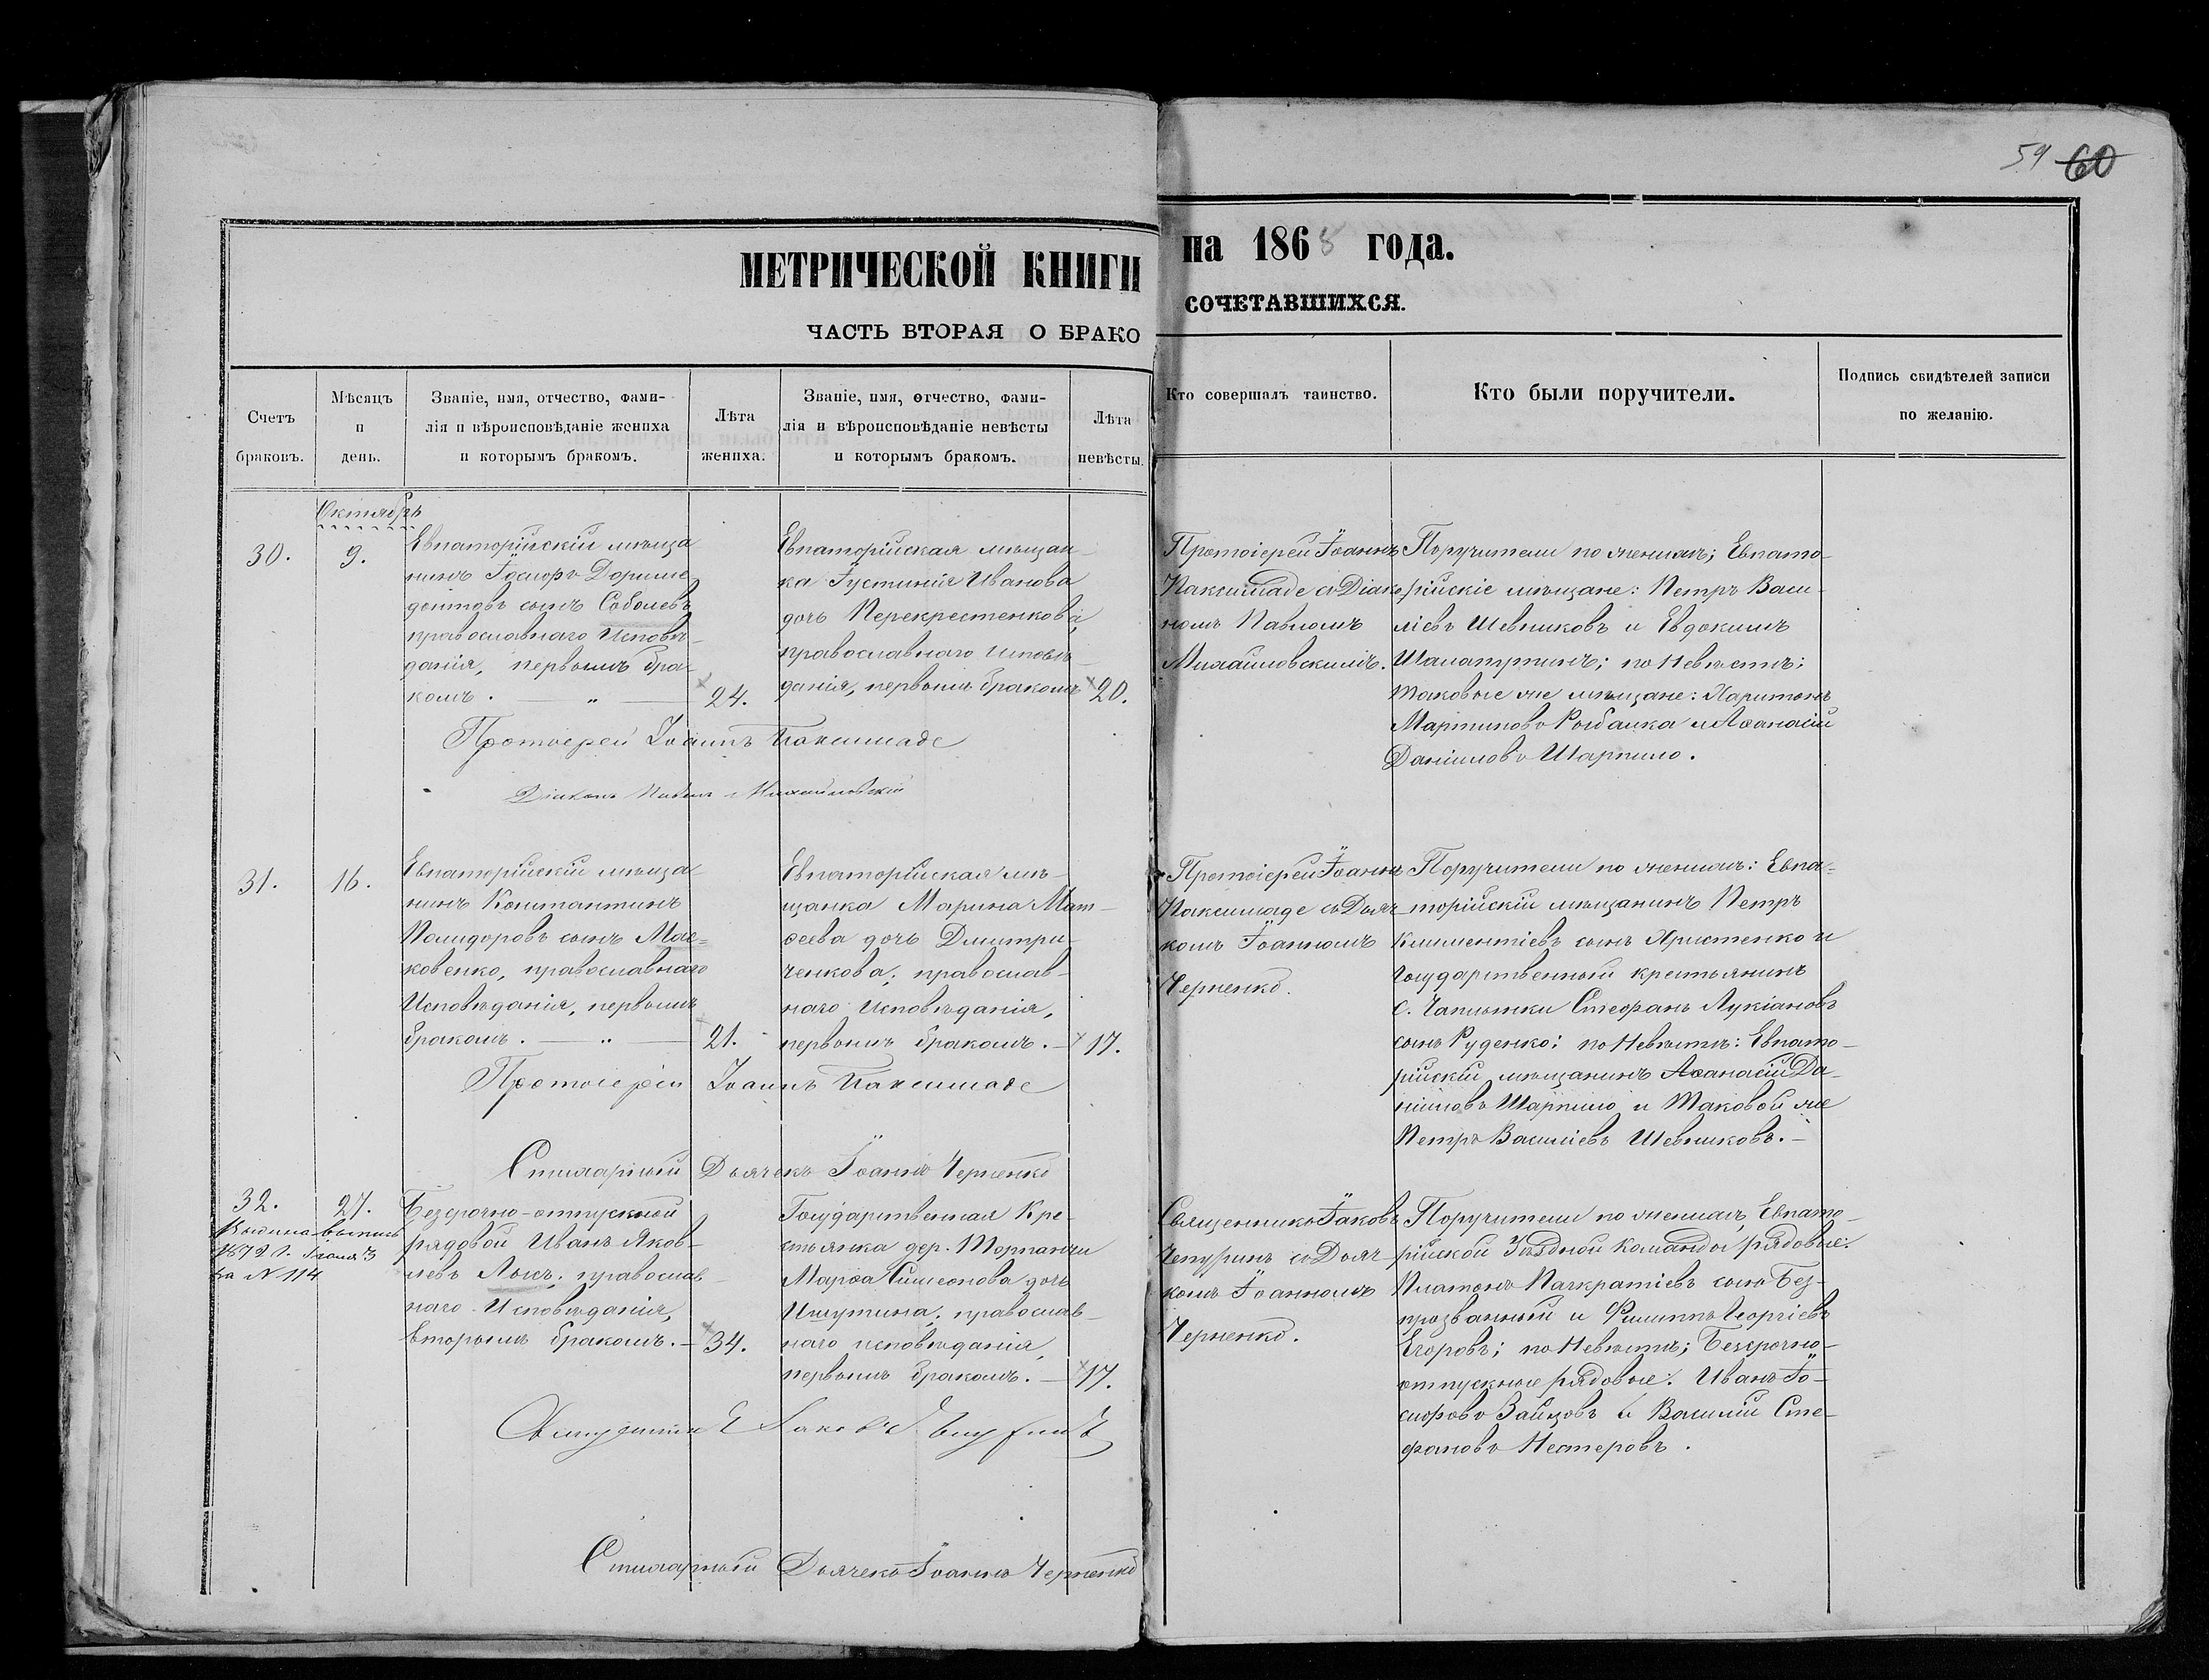 59 60
МЕТРИЧЕСКОЙ КНИГИ на 1868 года.
ЧАСТЬ ВТОРАЯ О БРАКО СОЧЕТАВШИХСЯ.
Счетъ
браковъ.
Мѣсяцъ
и
день.
Званіе, имя, отчество, фами-
лія и вѣроисповѣданіе жениха
и которымъ бракомъ.
Лѣта
жениха.
Званіе, имя, отчество, фами-
лія и вѣроисповѣданіе невѣсты
и которымъ бракомъ.
Лѣта
невѣсты.
Кто совершалъ таинство.
Кто были поручители.
Подпись свидѣтелей записи
по желанію.
Октябрь
30.
9.
Евпаторійскій мѣща
нинъ Іосифъ Дориме
донтовъ сынъ Соболевъ
православнаго Исповѣ-
данія, первымъ бра-
комъ. — „ —
24.
Евпаторійская мѣщан-
ка Іустинія Иванова
дочь Перекрестенкова,
православнаго исповѣ-
данія, первымъ бракомъ
20.
Протоіерей Іоаннъ
Паксимаде съ Діако
номъ Павломъ
Михайловскимъ.
Поручители по женихѣ; Евпато-
рійскіе мѣщане: Петръ Васи-
ліевъ Шевниковъ и Евдокимъ
Шалатринъ; по Невѣстѣ;
таковые же мѣщане: Харитонъ
Мартиновъ Рыбалка и Аѳанасій
Даніиловъ Шарпило.
Протоіерей Іоаннъ Паксимаде
Діаконъ Павелъ Михайловскій
31.
16.
Евпаторійскій мѣща
нинъ Константинъ
Полидоровъ сынъ Мос=
ковенко, православнаго
Исповѣданія, первымъ
бракомъ. — „ —
21.
Евпаторійская мѣ-
щанка Марина Мат-
ѳеева дочь Дмитри-
ченкова; православ-
наго Исповѣданія,
первымъ бракомъ. —
17.
Протоіерей Іоаннъ
Паксимаде съ Дьяч-
комъ Іоанномъ
Черненко.
Поручители по женихѣ: Евпа=
торійскій мѣщанинъ Петръ
Климентіевъ сынъ Христенко и
Государственный крестьянинъ
с. Чаплынки Стефанъ Лукіановъ
сынъ Руденко; по Невѣстѣ: Евпато-
рійскій мѣщанинъ Аѳанасій Да-
ніиловъ Шарпило и таковой же
Петръ Василіевъ Шевниковъ. —
Протоіерей Іоаннъ Паксимаде
Стихарный Дьячекъ Іоаннъ Черненко
32.
27.
Выдана выпись
1872 г. Іюля 3
за N 114
Безсрочно-отпускной
рядовой Иванъ Яков-
левъ Лыхъ; православ-
наго Исповѣданія,
вторымъ бракомъ. —
34.
Государственная Кре-
стьянка дер. Торпанчи
Марѳа Симеонова дочь
Ишутина; православ-
наго исповѣданія,
первымъ бракомъ. —
17.
Священникъ Іаковъ
Чепуринъ съ Дьяч-
комъ Іоанномъ
Черненко.
Поручители по женихѣ, Евпато-
рійской Уѣздной Команды рядовые:
Платонъ Панкратіевъ сынъ Без-
прозванный и Филиппъ Георгіевъ
Егоровъ; по Невѣстѣ; Безсрочно-
отпускные рядовые: Иванъ Іо-
сифовъ Зайцовъ и Василій Сте-
фановъ Нестеровъ.
Священникъ Іаковъ Чепуринъ
Стихарный Дьячекъ Іоаннъ Черненко